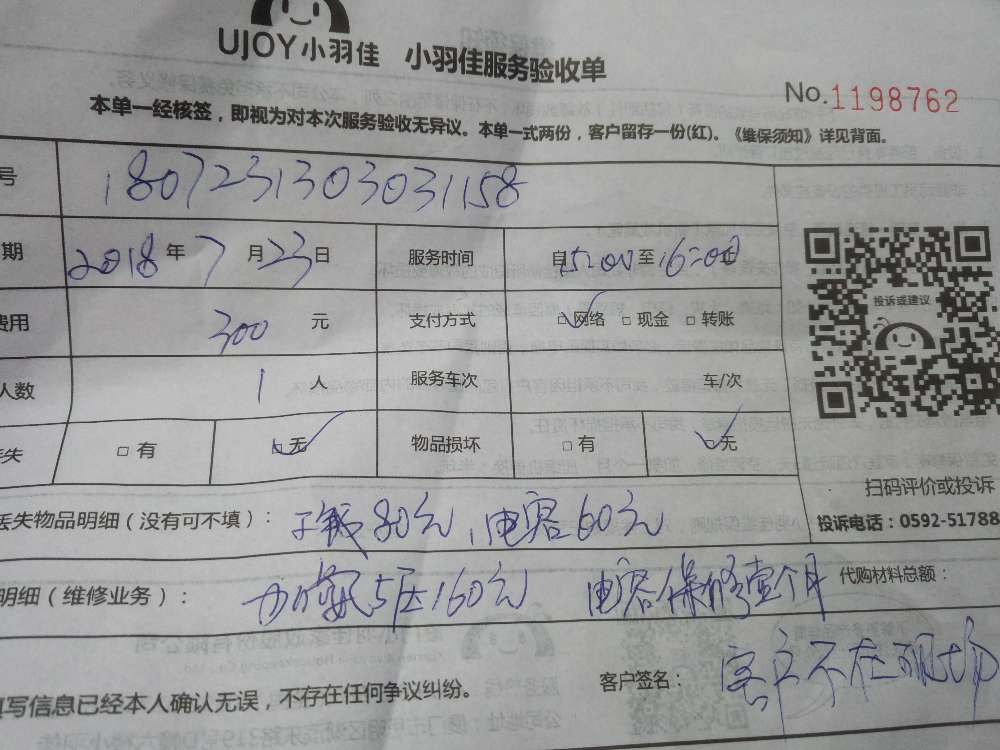 UJOY小羽佳 小羽佳服务验收单
No.1198762
本单一经核签，即视为对本次服务验收无异议。本单一式两份，客户留存一份(红)。《维保须知》详见背面。
号 1807231303031158
期 2018年7月23日 服务时间 自15:00至16:00
费用 300元 支付方式 □网络 □现金 □转账
人数 1人 服务车次 车/次
失 □有 □无 物品损坏 □有 □无
投诉或建议
扫码评价或投诉
投诉电话：0592-51788
丢失物品明细（没有可不填）： 80元，电容60元
明细（维修业务）： 加 5压160元 电容保修壹个月 代购材料总额：
填写信息已经本人确认无误，不存在任何争议纠纷。 客户签名： 客户不在现场